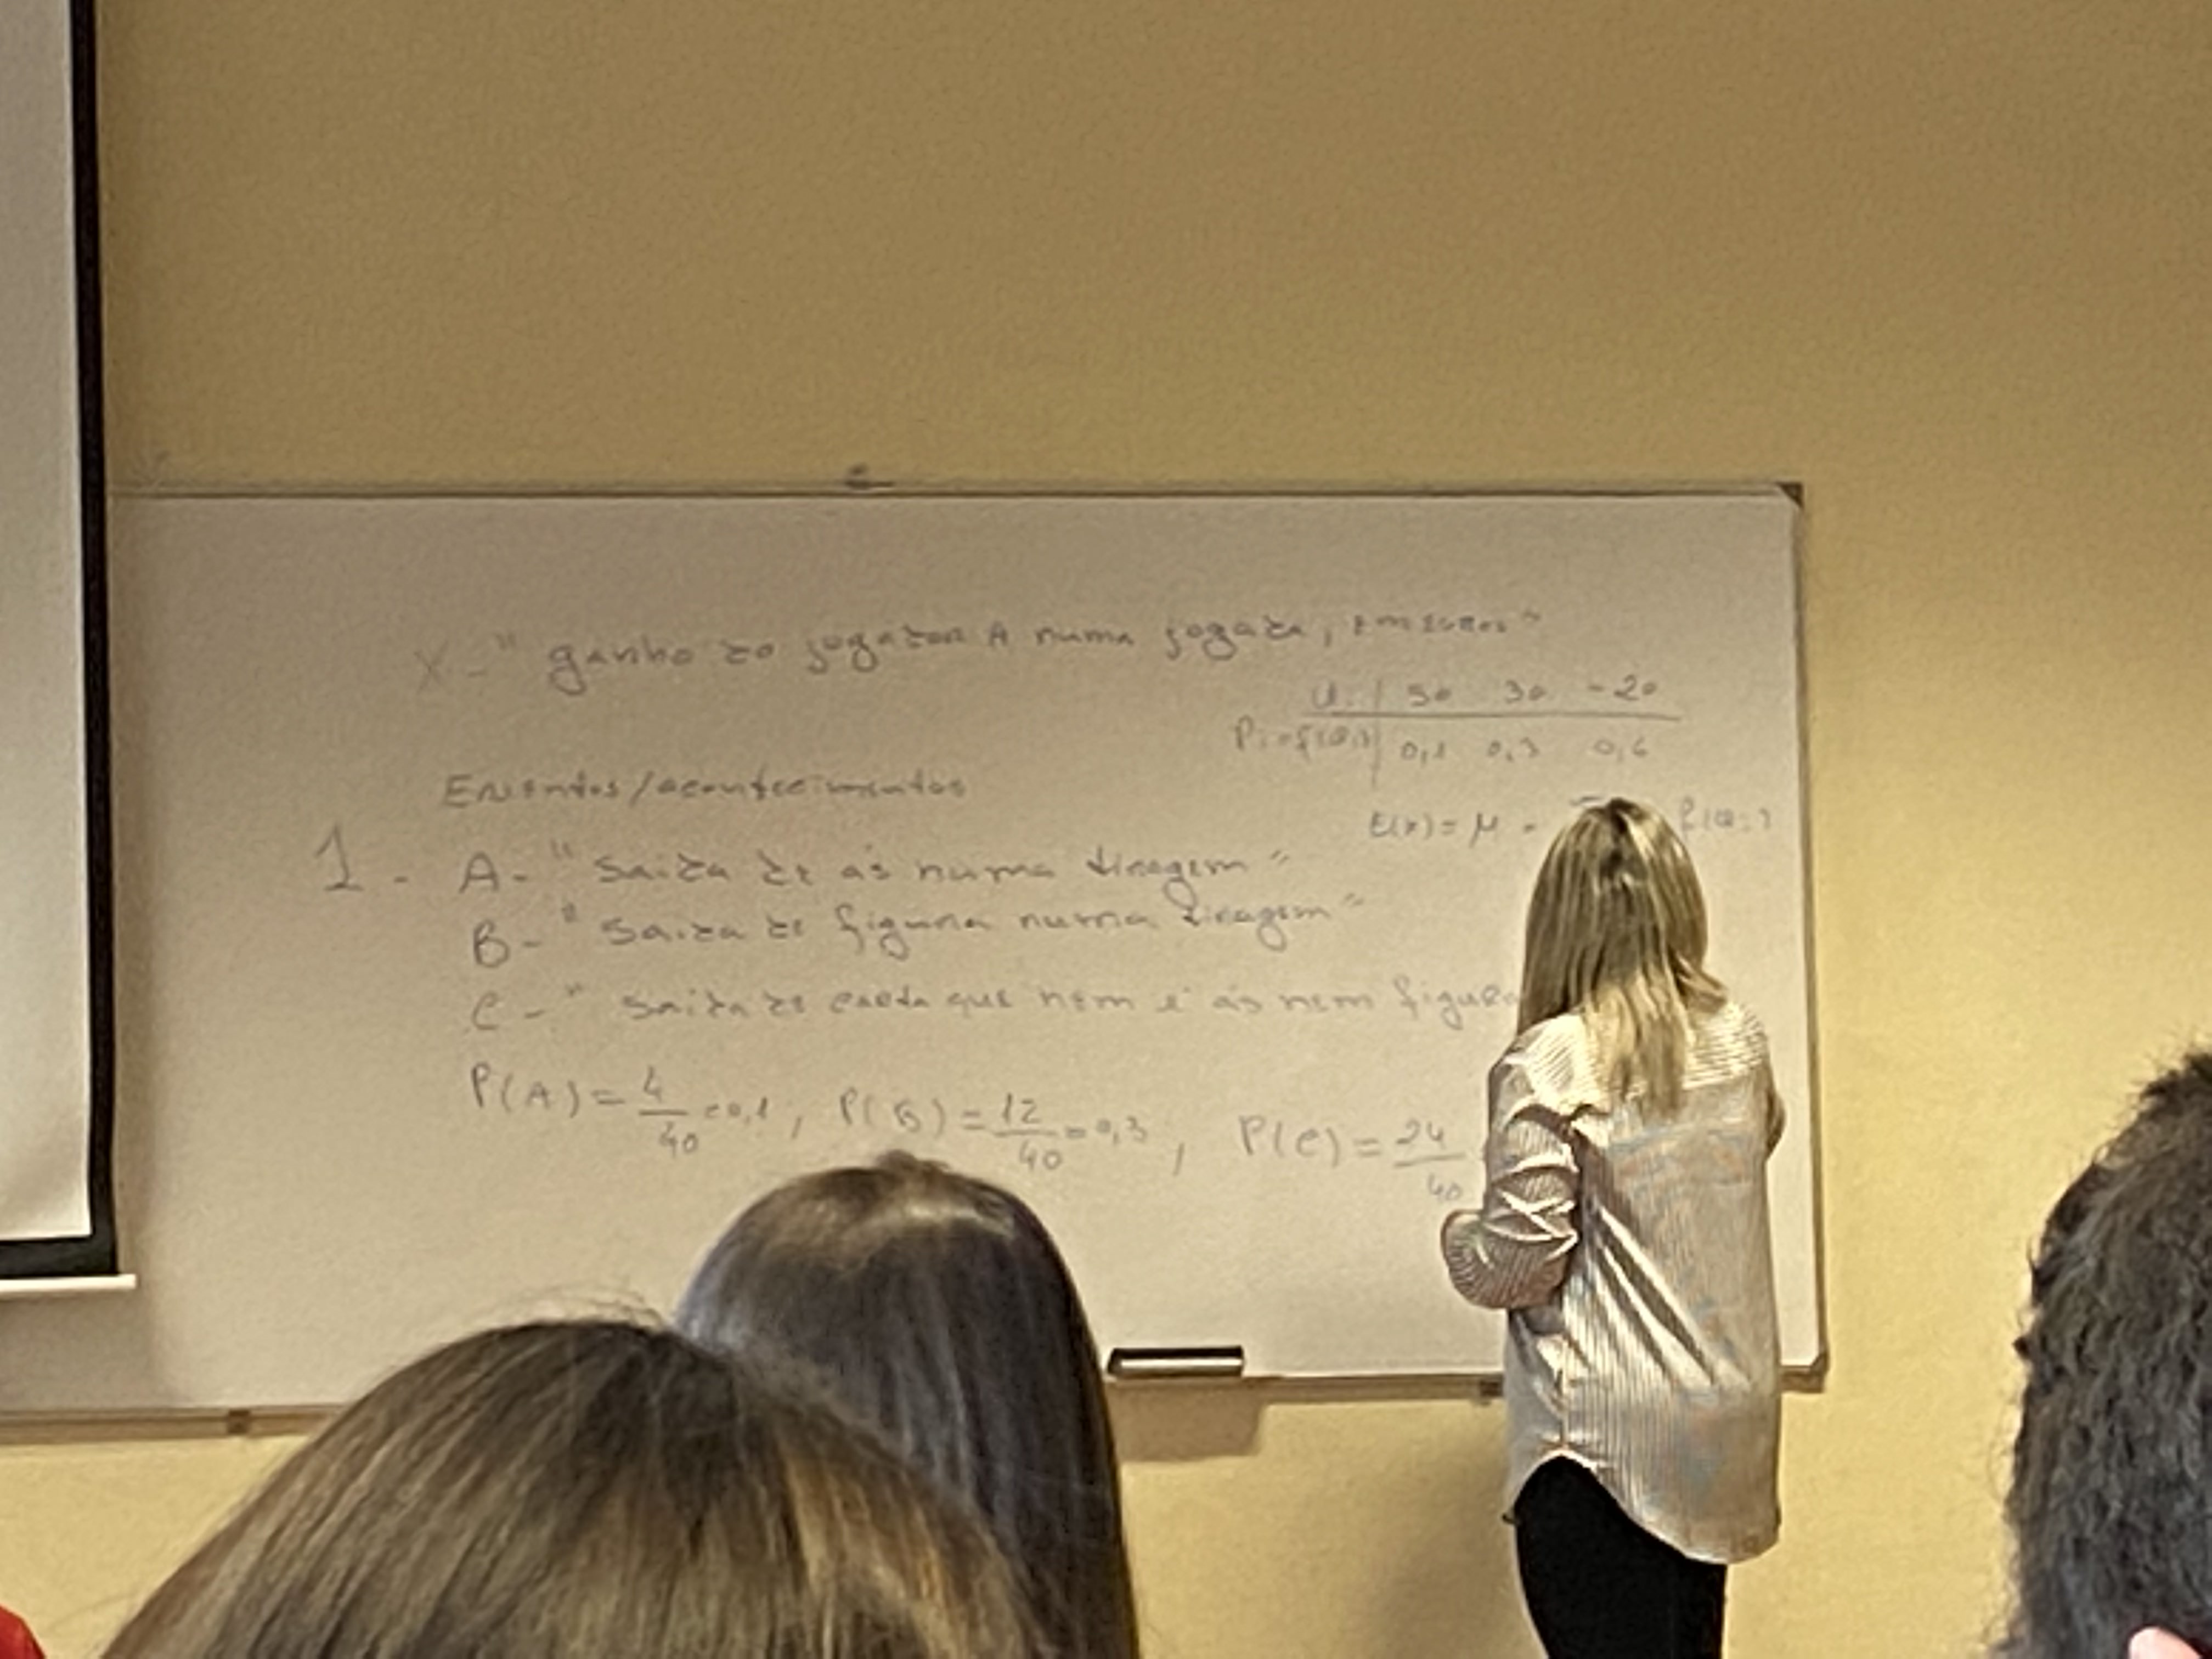 X - " ganho do jogador A numa jogada, em euros "
xi | 50 30 -20
Pi=f(xi) | 0,1 0,3 0,6
Eventos/acontecimentos
E(x) = μ = f(xi)
1 - A - " Saida de ás numa tiragem "
B - " Saida de figura numa tiragem "
C - " Saida de carta que nem é ás nem figura
P(A) = 4/40 = 0,1 , P(B) = 12/40 = 0,3 , P(C) = 24/40